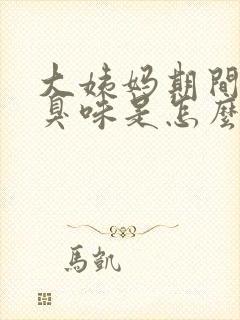 大姨妈期間
臭味是怎麼
馬凱